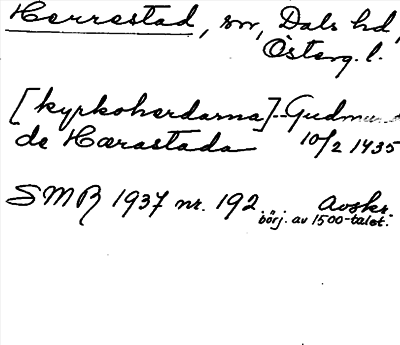 Herrestad, sn, Dals hd,
Österg. l.
[kyrkoherdarna]--Gudmun
de Hærastada 10/2 1435
SMR 1937 nr. 192. Avskr.
börj. av 1500-talet.